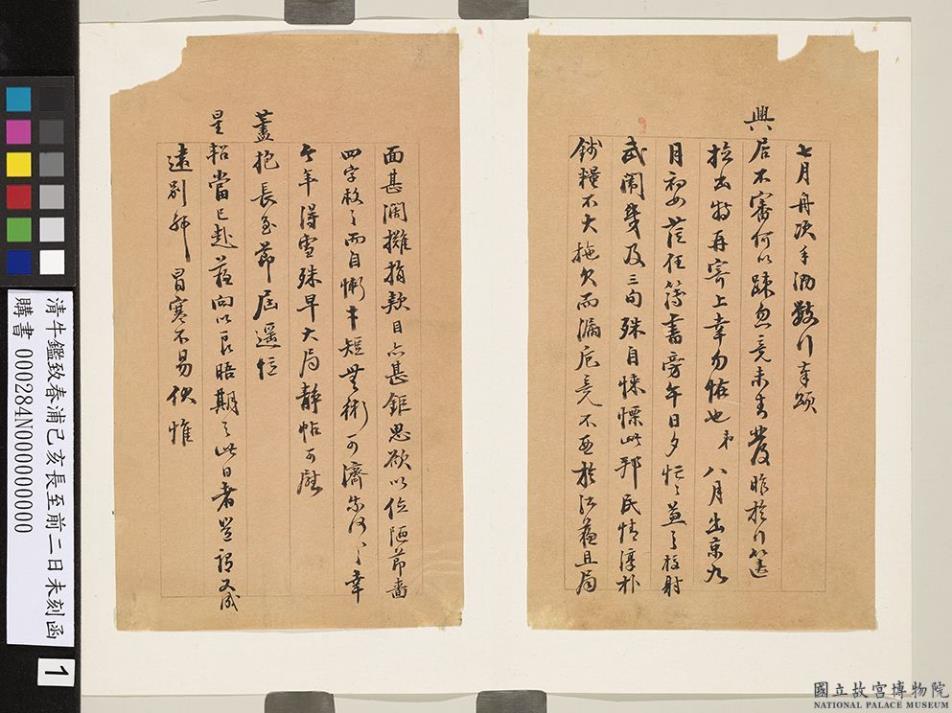 七月舟次手泐數行奉頌
興居不審何以疎忽竟未書發昨於行篋
拾出特再寄上幸勿怪也弟八月出京九
月初蒞任簿書旁午日夕忙忙益了校射
武闈幾及三旬殊自悚慄此邦民情淳朴
錢糧不大拖欠而漏卮竟不亞於江蘇且局
面甚濶攤捐款目亦甚鉅思欲以位陋節嗇
四字救之而自慚才短無術可濟奈何奈何幸
今年得雪殊早大局靜帖可慰
藎抱長至節屆遙忭
星軺當已赴蘇向以良晤期之此日者豈謂又成
遠別耶冒寒不易伏惟
清牛鑑致春浦己亥長至前二日未刻函
購書 000284N000000000
1
國立故宮博物院
NATIONAL PALACE MUSEUM